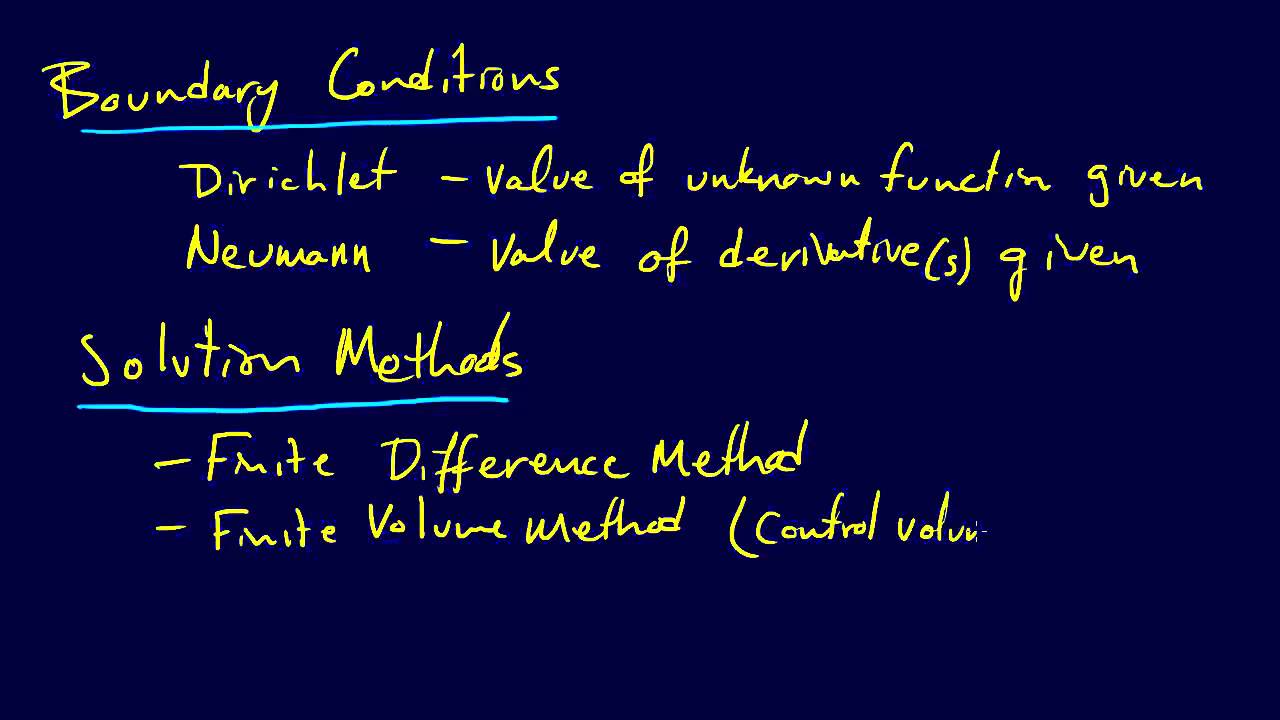 Boundary Conditions
Dirichlet - Value of unknown function given
Neumann - Value of derivative(s) given
Solution Methods
- Finite Difference Method
- Finite Volume Method (Control volum